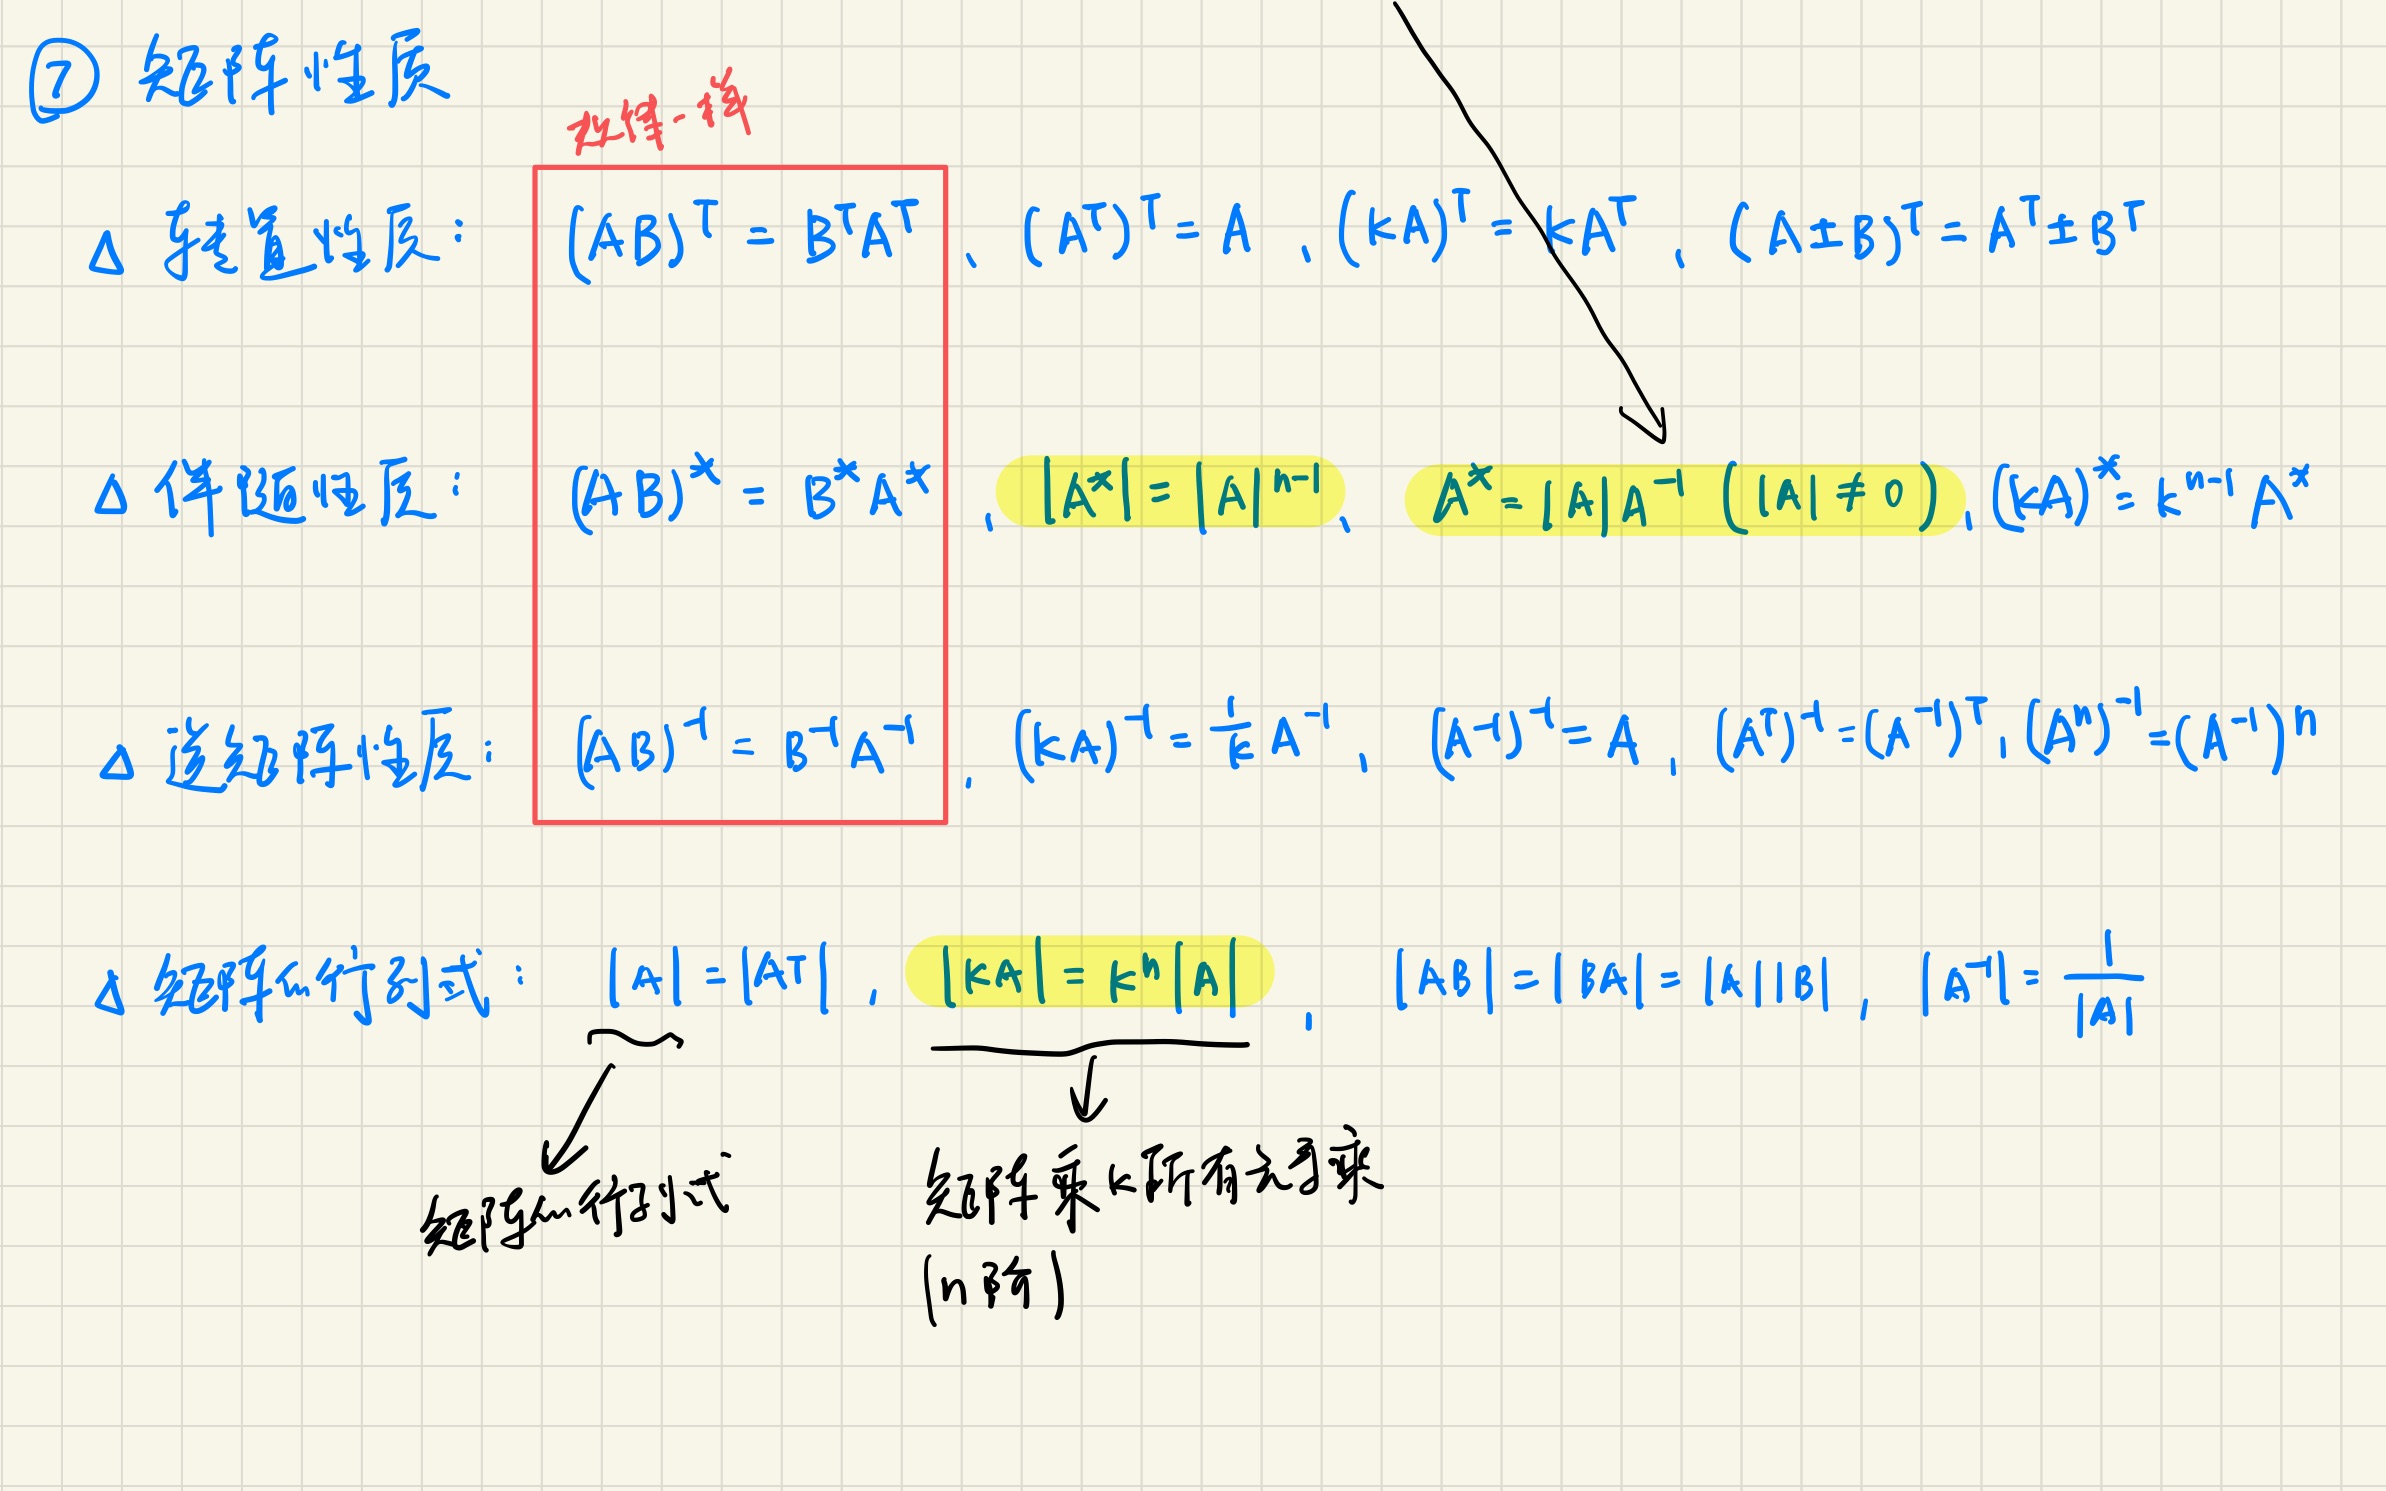 ② 矩阵性质
都一样
△ 转置性质: (AB)ᵀ = BᵀAᵀ, (Aᵀ)ᵀ = A, (kA)ᵀ = kAᵀ, (A±B)ᵀ = Aᵀ±Bᵀ
△ 伴随性质: (AB)* = B*A*, |A*| = |A|ⁿ⁻¹, A* = |A|A⁻¹ (|A|≠0), (kA)* = kⁿ⁻¹A*
△ 逆矩阵性质: (AB)⁻¹ = B⁻¹A⁻¹, (kA)⁻¹ = 1/k A⁻¹, (A⁻¹)⁻¹ = A, (Aᵀ)⁻¹ = (A⁻¹)ᵀ, (Aⁿ)⁻¹ = (A⁻¹)ⁿ
△ 矩阵的行列式: |A| = |Aᵀ|, |kA| = kⁿ|A|, |AB| = |BA| = |A||B|, |A⁻¹| = 1/|A|
矩阵的行列式
矩阵乘k所有元素乘
(n阶)